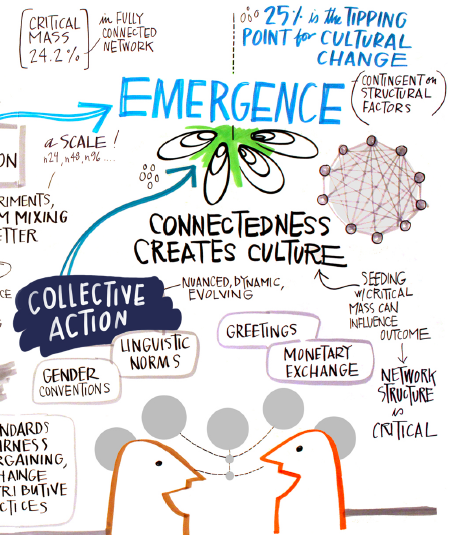 CRITICAL
MASS
24.2%
in FULLY
CONNECTED
NETWORK
25% is the TIPPING
POINT for CULTURAL
CHANGE
EMERGENCE
(CONTINGENT on
STRUCTURAL
FACTORS)
@ SCALE!
n24, n48, n96 ....
ON
RIMENTS,
M MIXING
ETTER
CONNECTEDNESS
CREATES CULTURE
NUANCED, DYNAMIC,
EVOLVING
COLLECTIVE
ACTION
CE
SEEDING
w/CRITICAL
MASS CAN
INFLUENCE
OUTCOME
NETWORK
STRUCTURE
is
CRITICAL
LINGUISTIC
NORMS
GENDER
CONVENTIONS
GREETINGS
MONETARY
EXCHANGE
NDARDS
IRNESS
RGAINING,
HANGE
TRIBUTIVE
CTICES